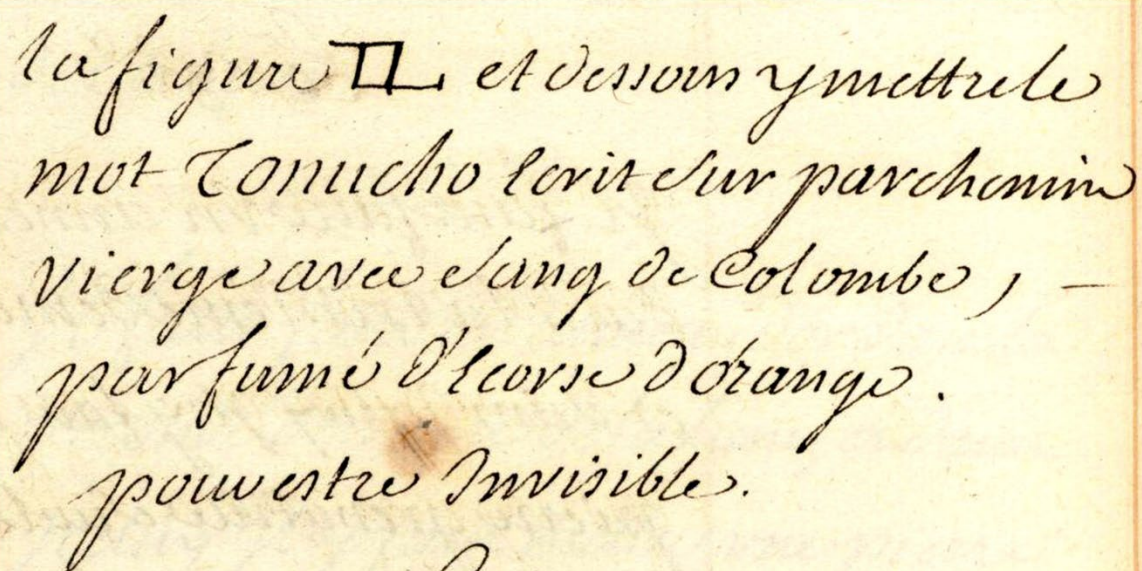 la figure et dessous y mettre le
mot Tonucho Ecrit sur parchemin
vierge avec sang de Colombe,
parfumé d'Ecorse d'orange.
pour estre Invisible.